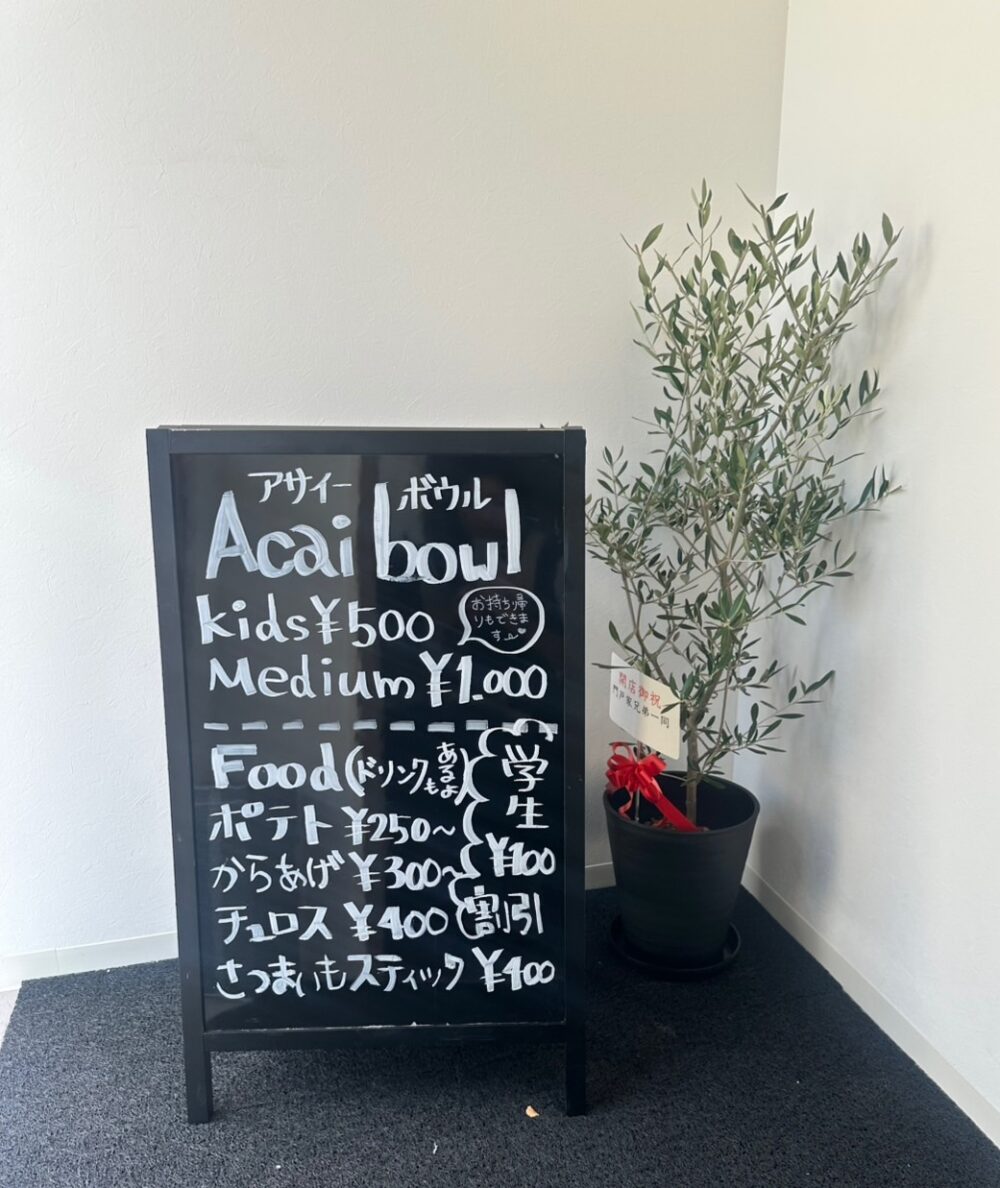 アサイー ボウル
Acai bowl
kids ¥500
お持ち帰
りもできま
す
Medium ¥1.000
Food (ドリンクもあるよ)
ポテト ¥250～
からあげ ¥300～
チュロス ¥400
さつまいもスティック ¥400
学生
¥100
割引
開店御祝
門戸家兄弟一同